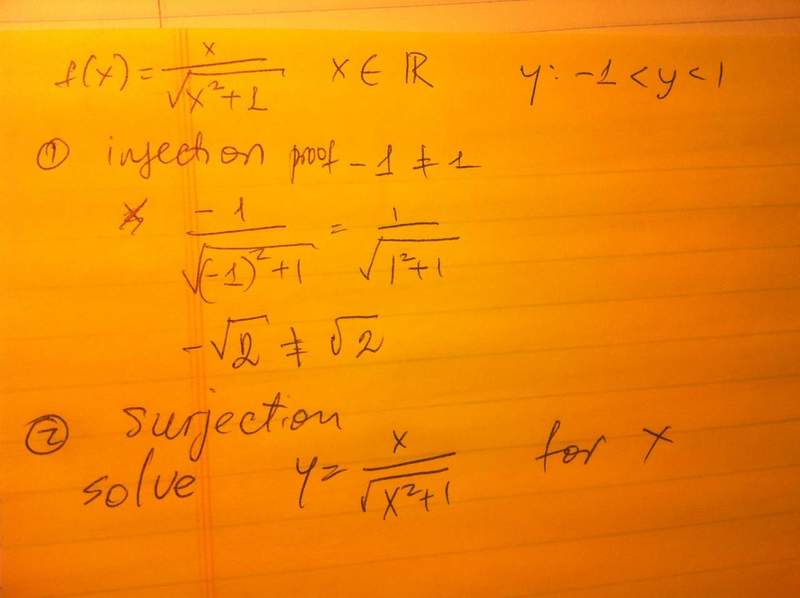 f(x) = x/√(x²+1)   x ∈ ℝ   y: -1 < y < 1
① injection proof -1 ≠ 1
-1/√((-1)²+1) = 1/√(1²+1)
-√2 ≠ √2
② surjection
solve y = x/√(x²+1) for x